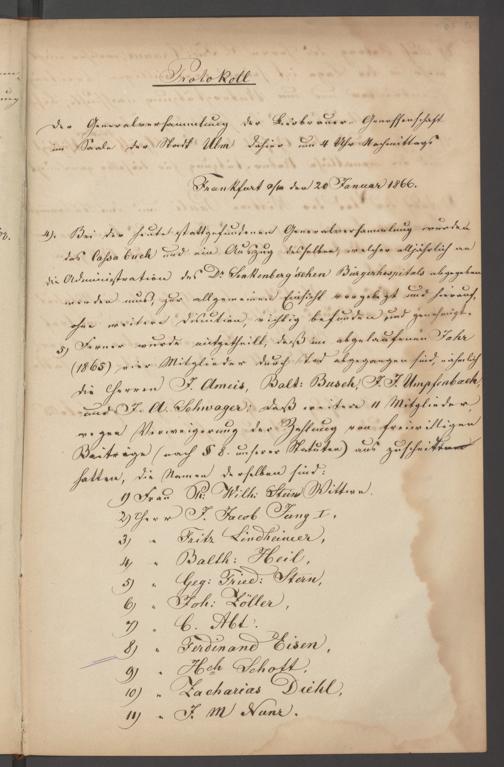 Protokoll
der Generalversammlung der Bierbrauer-Genossenschaft
im Saale der Stadt Ulm dahier um 4 Uhr Nachmittags
Frankfurt a/m den 20 Januar 1866.
4). Bei der heute stattgefundenen Generalversammlung wurden
das Cassabuch und ein Auszug desselben, welcher alljährlich an
die Administration des Dr. Senkenberg'schen Bürgerhospitals abgegeben
werden muß, zur allgemeinen Einsicht vorgelegt und hierauf,
ohne weitere Discution, richtig befunden und genehmigt.
5) Ferner wurde mitgetheilt, daß im abgelaufenen Jahr
(1865) vier Mitglieder durch Tod abgegangen sind, nämlich
die Herren J. Ameis, Balth: Busch, J. J. Umpfenbach,
und J. A. Schwager; daß weitere 11 Mitglieder,
wegen Verweigerung der Zahlung von freiwilligen
Beiträge (nach § 8. unserer Statuten) auszuscheiden
hatten, die Namen derselben sind:
1) Frau Wilh: Stein Wittwe.
2) Herr J. Jacob Jung I.,
3) " Fritz Lindheimer,
4) " Balth: Heil,
5) " Geg: Fried: Stern,
6) " Joh: Zöller,
7) " C. Abt.
8) " Ferdinand Eisen,
9) " Hch Schott,
10) " Zacharias Diehl,
11) " J. M